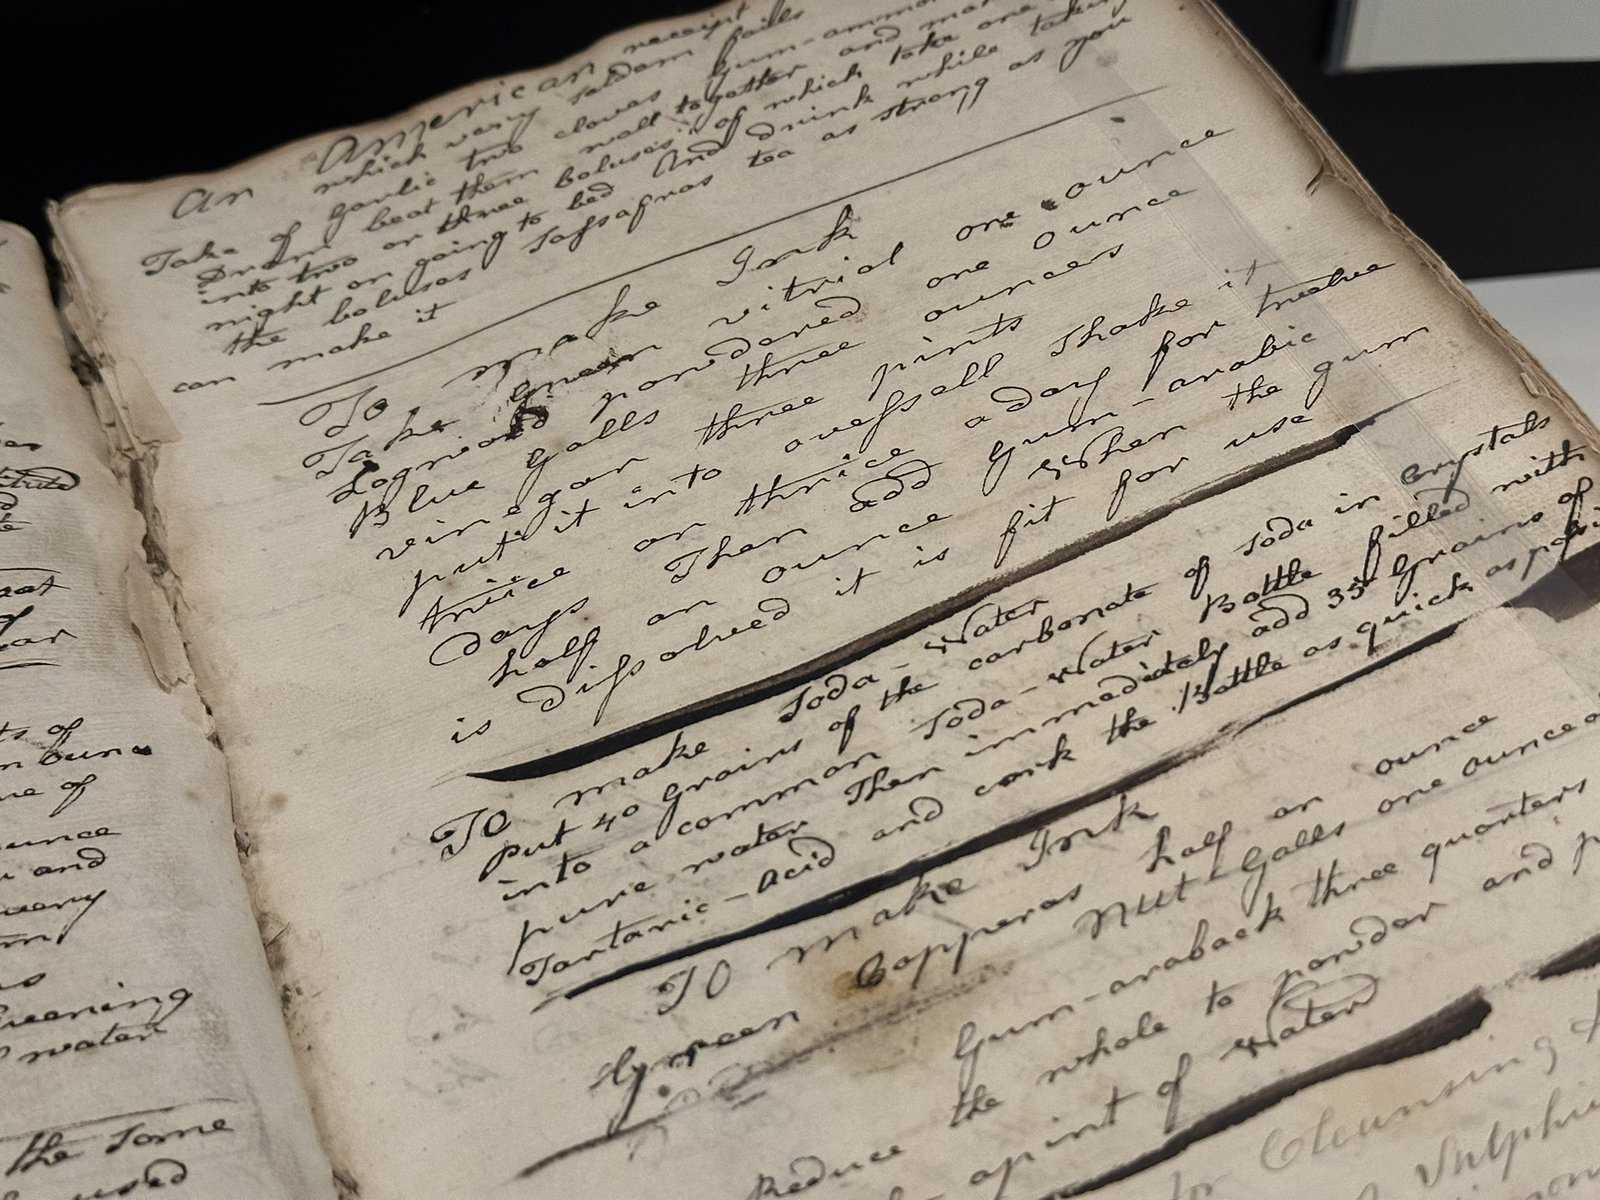 ts of
ounce
ne of
ounce
and
very
water
the Same
used
An American receipt
which very saldom fails
Take of garlic two cloves Gum-ammon
Dram beat them wall togather and make
into two or three boluses of which take one
night on going to bed And drink while taking
the boluses Saſsafras tea as strong as you
can make it
To make Ink
Take Green vitrial one ounce
Logwood powdared one ounce
Blue Galls three ouncers
vinegar three pints
put it into aveſsell Shake it
twice or thrice a day for twelve
Days Then add Gum-arabic
half an ounce When the gum
is diſsolved it is fit for use
To make Soda-Water
Put 40 grains of the carbonate of Soda in Crystals
into a common Soda-Water Bottle filled with
pure water Then immediately add 35 Grains of
Tartaric-Acid and cork the Bottle as quick as
To make Ink
Green Copperas half an ounce
Nut-Galls one ounce
Gum-araback three quarters
Reduce the whole to powdar and
apint of Water
for Cleansing
Sulphu